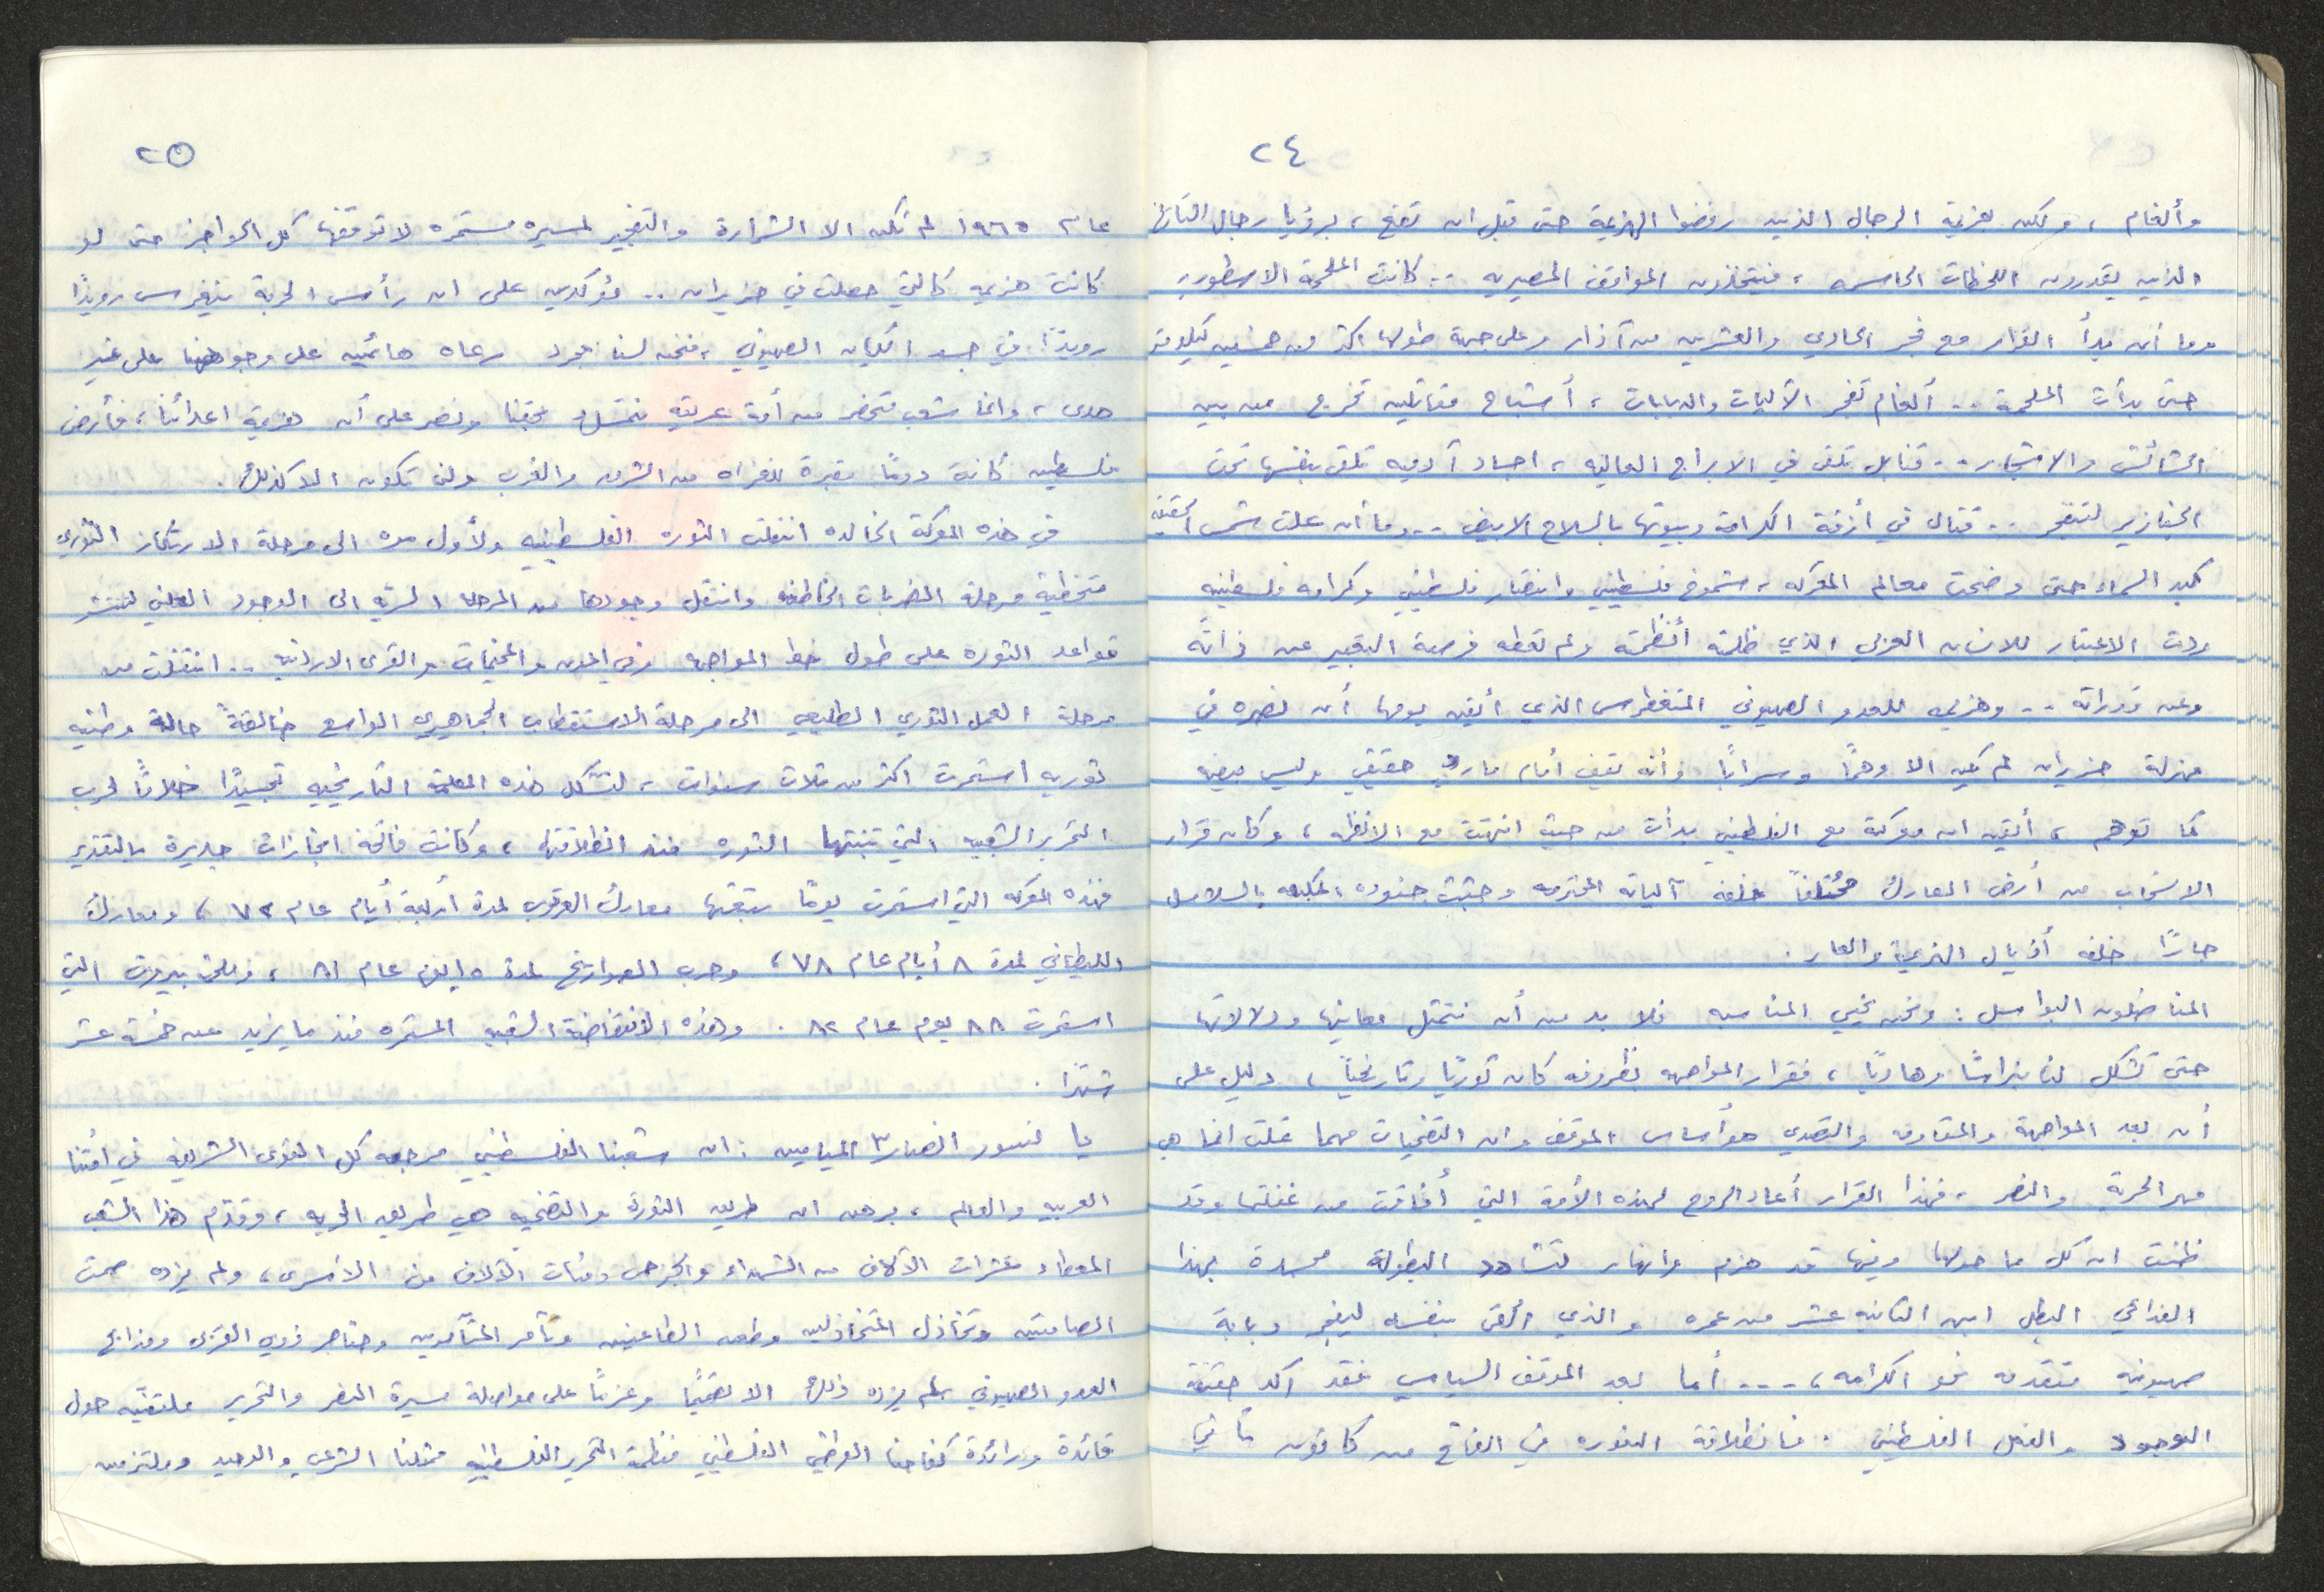 ٢٤
وألغام ، ولكن بعزيمة الرجال الذين رفضوا الهزيمة حتى قبل ان تقع ، برؤيا رجال التاريخ
الذين يقدرون اللحظات الحاسمه ، فيتخذون المواقف المصيريه .. كانت الملحمة الاسطوريه
وما أن بدأ القرار مع فجر الحادي والعشرين من آذار وعلى جبهة طولها اكثر من خمسين كيلومتر
حتى بدأت الملحمة .. ألغام تفجر الآليات والدبابات ، أشباح مقاتلين تخرج من بين
الحشائش والاشجار .. قنابل تلقى في الابراج العاليه ، اجساد آدميه تلقي بنفسها تحت
الجنازير لتنفجر .. قتال في أزقة الكرامة وبيوتها بالسلاح الابيض .. وما أن علت شمس الحقيقه
كبد السماء حتى وضحت معالم المعركه ، شموخ فلسطيني وانتصار فلسطيني وكرامه فلسطينيه
ردت الاعتبار للانسان العربي الذي ظلمته أنظمته ولم تعطه فرصة التعبير عن ذاته
وعن قدراته .. وهزيمه للعدو الصهيوني المتغطرس الذي أيقن يومها أن نصره في
مهزلة حزيران لم يكن الا وهمًا وسرابًا وأنه يقف أمام مارد حقيقي وليس
كما توهم ، أيقن ان معركة مع الفلسطيني بدأت من حيث انتهت مع الانظمه ، وكان قرار
الانسحاب من أرض المعارك مخلفًا خلفه آلياته المحترقه وجثث جنوده المكبله بالسلاسل
جارًا خلفه أذيال الهزيمة والعار .
المناضلون البواسل : ونحن نحيي المناسبه فلا بد من أن نتمثل معانيها ودلالاتها
حتى تشكل لنا نبراسًا وهاديًا ، فقرار المواجهه بظروفه كان ثوريًا وتاريخيًا ، دليل على
أن بعد المواجهة والمقاومه والتصدي هو أساس الموقف وان التضحيات مهما غلت انما هي
مهر الحرية والنصر ، فهذا القرار أعاد الروح لهذه الأمة التي أفاقت من غفلتها وقد
ظنت ان كل ما حولها وفيها قد هزم وانهار لتشاهد البطولة مجسدة بهذا
الفدائي البطل ابن الثانيه عشر من عمره والذي ألقى بنفسه ليفجر دبابة
صهيونيه متقدمه نحو الكرامه ، ... أما بعد الموقف السياسي فقد اكد حقيقة
الوجود والفعل الفلسطيني . فانطلاقة الثوره في الفاتح من كانون ثاني
٢٥
عام ١٩٦٥ لم تكن الا الشرارة والتفجير لمسيره مستمره لا توقفها كل الحواجز حتى لو
كانت هزيمه كالتي حصلت في حزيران .. مؤكدين على ان رأس الحربة ينغرس رويدًا
رويدًا في جسد الكيان الصهيوني ، فنحن لسنا مجرد رعاه هائمين على وجوهنا على غير
هدى ، وانما شعب متحضر من أمة عريقه نتمسك بحقنا ونصر على أن هزيمة اعدائنا ، فأرض
فلسطين كانت دومًا مقبرة للغزاه من الشرق والغرب ولن تكون الا كذلك .
في هذه المعركة الخالده انتقلت الثوره الفلسطينيه ولأول مره الى مرحلة الارتكاز الثوري
متخطية مرحلة الضربات الخاطفه وانتقل وجودها من المرحله السريه الى الوجود العلني لتنتشر
قواعد الثوره على طول خط المواجهه وفي المدن والمخيمات والقرى الاردنيه .. انتقلت من
مرحلة العمل الثوري الطليعي الى مرحلة الاستقطاب الجماهيري الواسع خالقةً حالة وطنيه
ثوريه استمرت اكثر من ثلاث سنوات ، لتشكل هذه الملحمة التاريخيه تجسيدًا خلاقًا لحرب
التحرير الشعبيه التي تبنتها الثوره منذ انطلاقتها ، وكانت فاتحة انجازات جديرة بالتقدير
فهذه المعركه التي استمرت يومًا تبعتها معارك العرقوب لمدة أربعة أيام عام ٧٢ ، ومعارك
الليطاني لمدة ٨ أيام عام ٧٨ ، وحرب الصواريخ لمدة عام ٨١ ، وملحمة بيروت التي
استمرت ٨٨ يوم عام ٨٢ . وهذه الانتفاضة الشعبيه المستمره منذ ما يزيد عن خمسة عشر
شهرًا .
يا نسور أنصار ٣ الميامين : ان شعبنا الفلسطيني ومعه كل القوى الشريفه في أمتنا
العربيه والعالم ، برهن ان طريق الثورة والتضحيه هي طريق الحريه ، وقدم هذا الشعب
المعطاء عشرات الآلاف من الشهداء والجرحى ومئات الآلاف من الأسرى ، ولم يزده صمت
الصامتين وتخاذل المتخاذلين وطعن الطاعنين وتآمر المتآمرين وخناجر ذوي القربى ومذابح
العدو الصهيوني لم يزده ذلك الا تصميمًا وعزمًا على مواصلة مسيرة النصر والتحرير ملتفين حول
قائدة ورائدة كفاحنا الوطني الفلسطيني منظمة التحرير الفلسطينيه ممثلنا الشرعي والوحيد وملتزمين